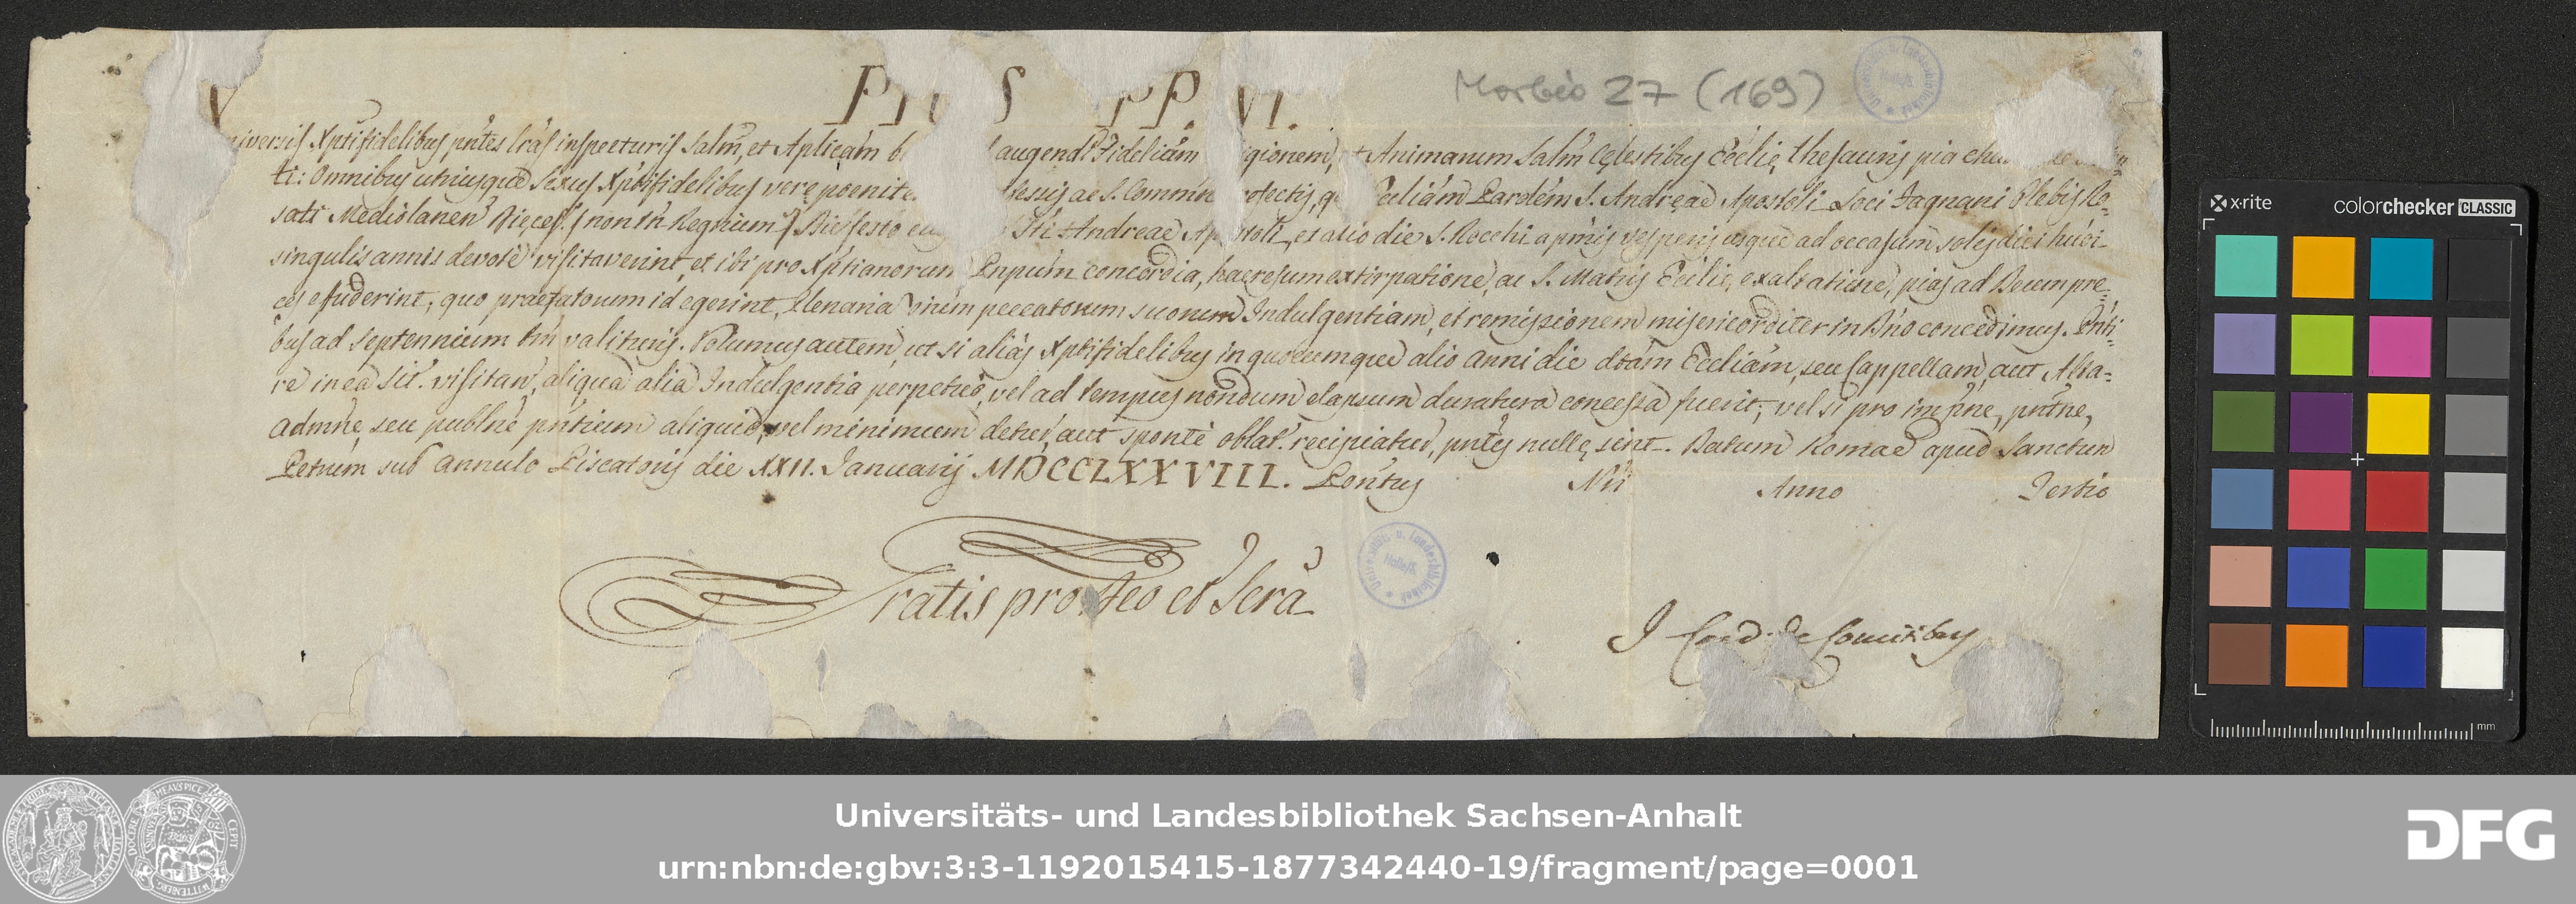 PIUS PP. VI.
Morbio 27 (169)
niversis Xptifidelibus pntes lras inspecturis Salm, et Aplicam b augendi Fidelium igionem, et Animarum Salm Celestibus Ecclie, thesauris pia
ti: Omnibus utriusque Sexus Xptifidelibus vere poenite fessis ac S. Commun refectis, q Eccliam Parolem S. Andreae Apostoli Loci Jagnani Plebis Ro=
sati Mediolanen Dieces. (non tn Regnium) Die festo S'ti Andreae Ap stoli, et alio die S. Rocchi a pmis vesperis usque ad occasum solis diei hmoi
singulis annis devote visitaverint, et ibi pro Xptianorum Pnpum concordia, haeresum extirpatione, ac S. Matris Ecclie, exaltatione, pias ad Deum pre=
ces effuderint; quo praefatorum id egerint, Plenaria omium peccatorum suorum Indulgentiam, et remissionem misericorditer in Dno concedimus. Pnti=
bus ad Septennium tm valituris. Volumus autem, ut si alias Xptifidelibus in quocumque alio anni die dtam Eccliam, seu Cappellam, aut Alta=
re in ea sit. visitan, aliqua alia Indulgentia perpetuo, vel ad tempus nondum elapsum duratura concessa fuerit; vel si pro impne, pntne,
admne, seu publne pntium aliquid, vel minimum detur, aut sponte oblat. recipiatur, pntes nulle sint. Datum Romae apud Sanctum
Petrum sub Annulo Piscatoris die XXII. Januarij MDCCLXXVIII. Pontus Nri Anno Tertio
Gratis pro Deo et Scra
I Card. de Comitibus
x-rite colorchecker CLASSIC
mm
Universitäts- und Landesbibliothek Sachsen-Anhalt
urn:nbn:de:gbv:3:3-1192015415-1877342440-19/fragment/page=0001
DFG